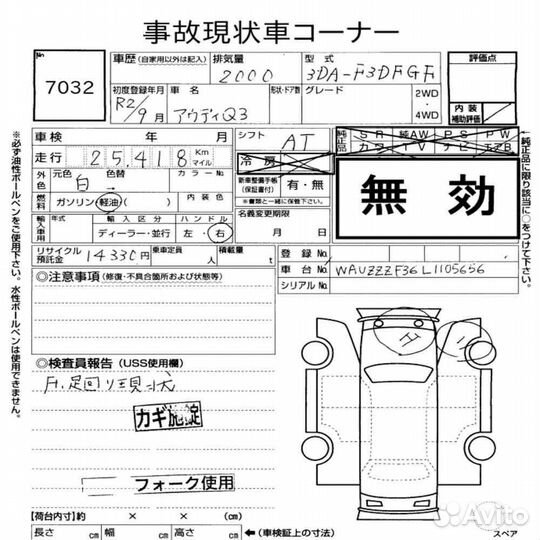 事故現状車コーナー
No
7032
車歴 (自家用以外は記入)
排気量
2000
型式
3DA-F3DFGF
初度登録年月
R2/9月
車名
アウディQ3
形状・ドア数
グレード
2WD
・
4WD
評価点
内装
補助評価
車検 年 月
走行 25,418 Km マイル
外色 元色 白 色替 カラーNo
燃料 ガソリン 軽油 ( ) 内装色
輸入車用 年式 輸入区分 ハンドル
ディーラー・並行 左・右
リサイクル預託金 14330円 乗車定員 人 積載量 t
シフト AT
冷房
新車整備手帳 (保証書付) 有・無
※書類と一緒に保管して下さい。
名義変更期限
月 日
純正品 SR 純AW PS PW
カワ TV ナビ エアB
無効
登録No
車台No WAUZZZF36L1105656
シリアルNo
◎注意事項 (修復・不具合箇所および状態等)
◎検査員報告 (USS使用欄)
F.足回り現状
カギ施錠
フォーク使用
【荷台内寸】約 × × (cm)
長さ cm 幅 cm 高さ cm ←(車検証上の寸法)
スペア
※必ず油性ボールペンをご使用下さい。水性ボールペンは使用できません。
純正品に限り該当に○をつけて下さい。
Avito